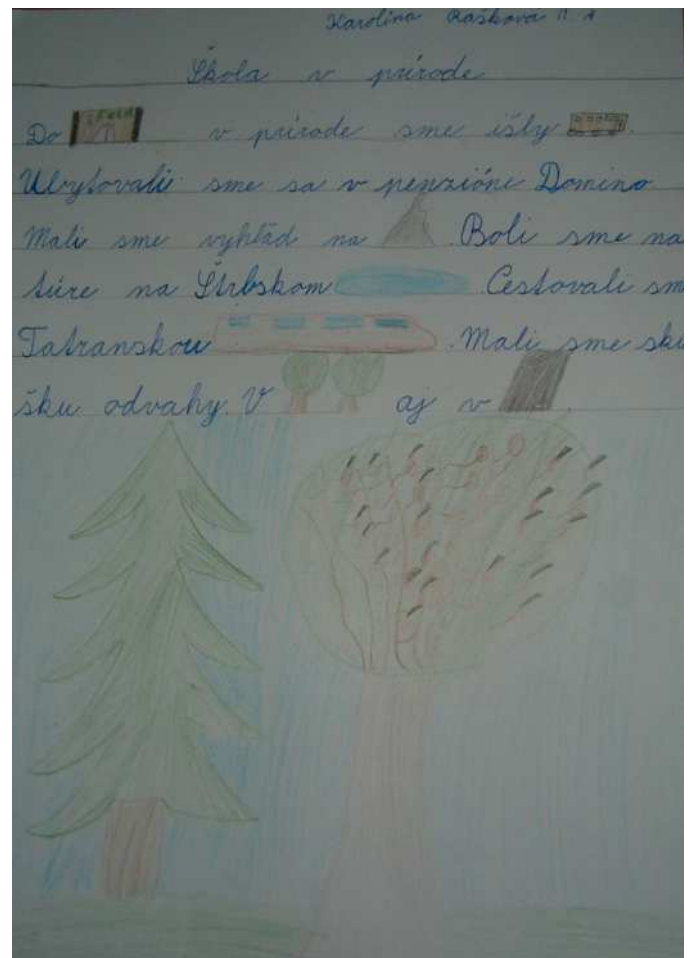 Karolina Rašková II. A
Škola v prírode
Do v prírode sme išly .
Ubytovali sme sa v penzióne Domino
Mali sme vyhľad na . Boli sme na
túre na Štrbskom . Cestovali sm
Tatranskou . Mali sme sku
šku odvahy. V aj v .